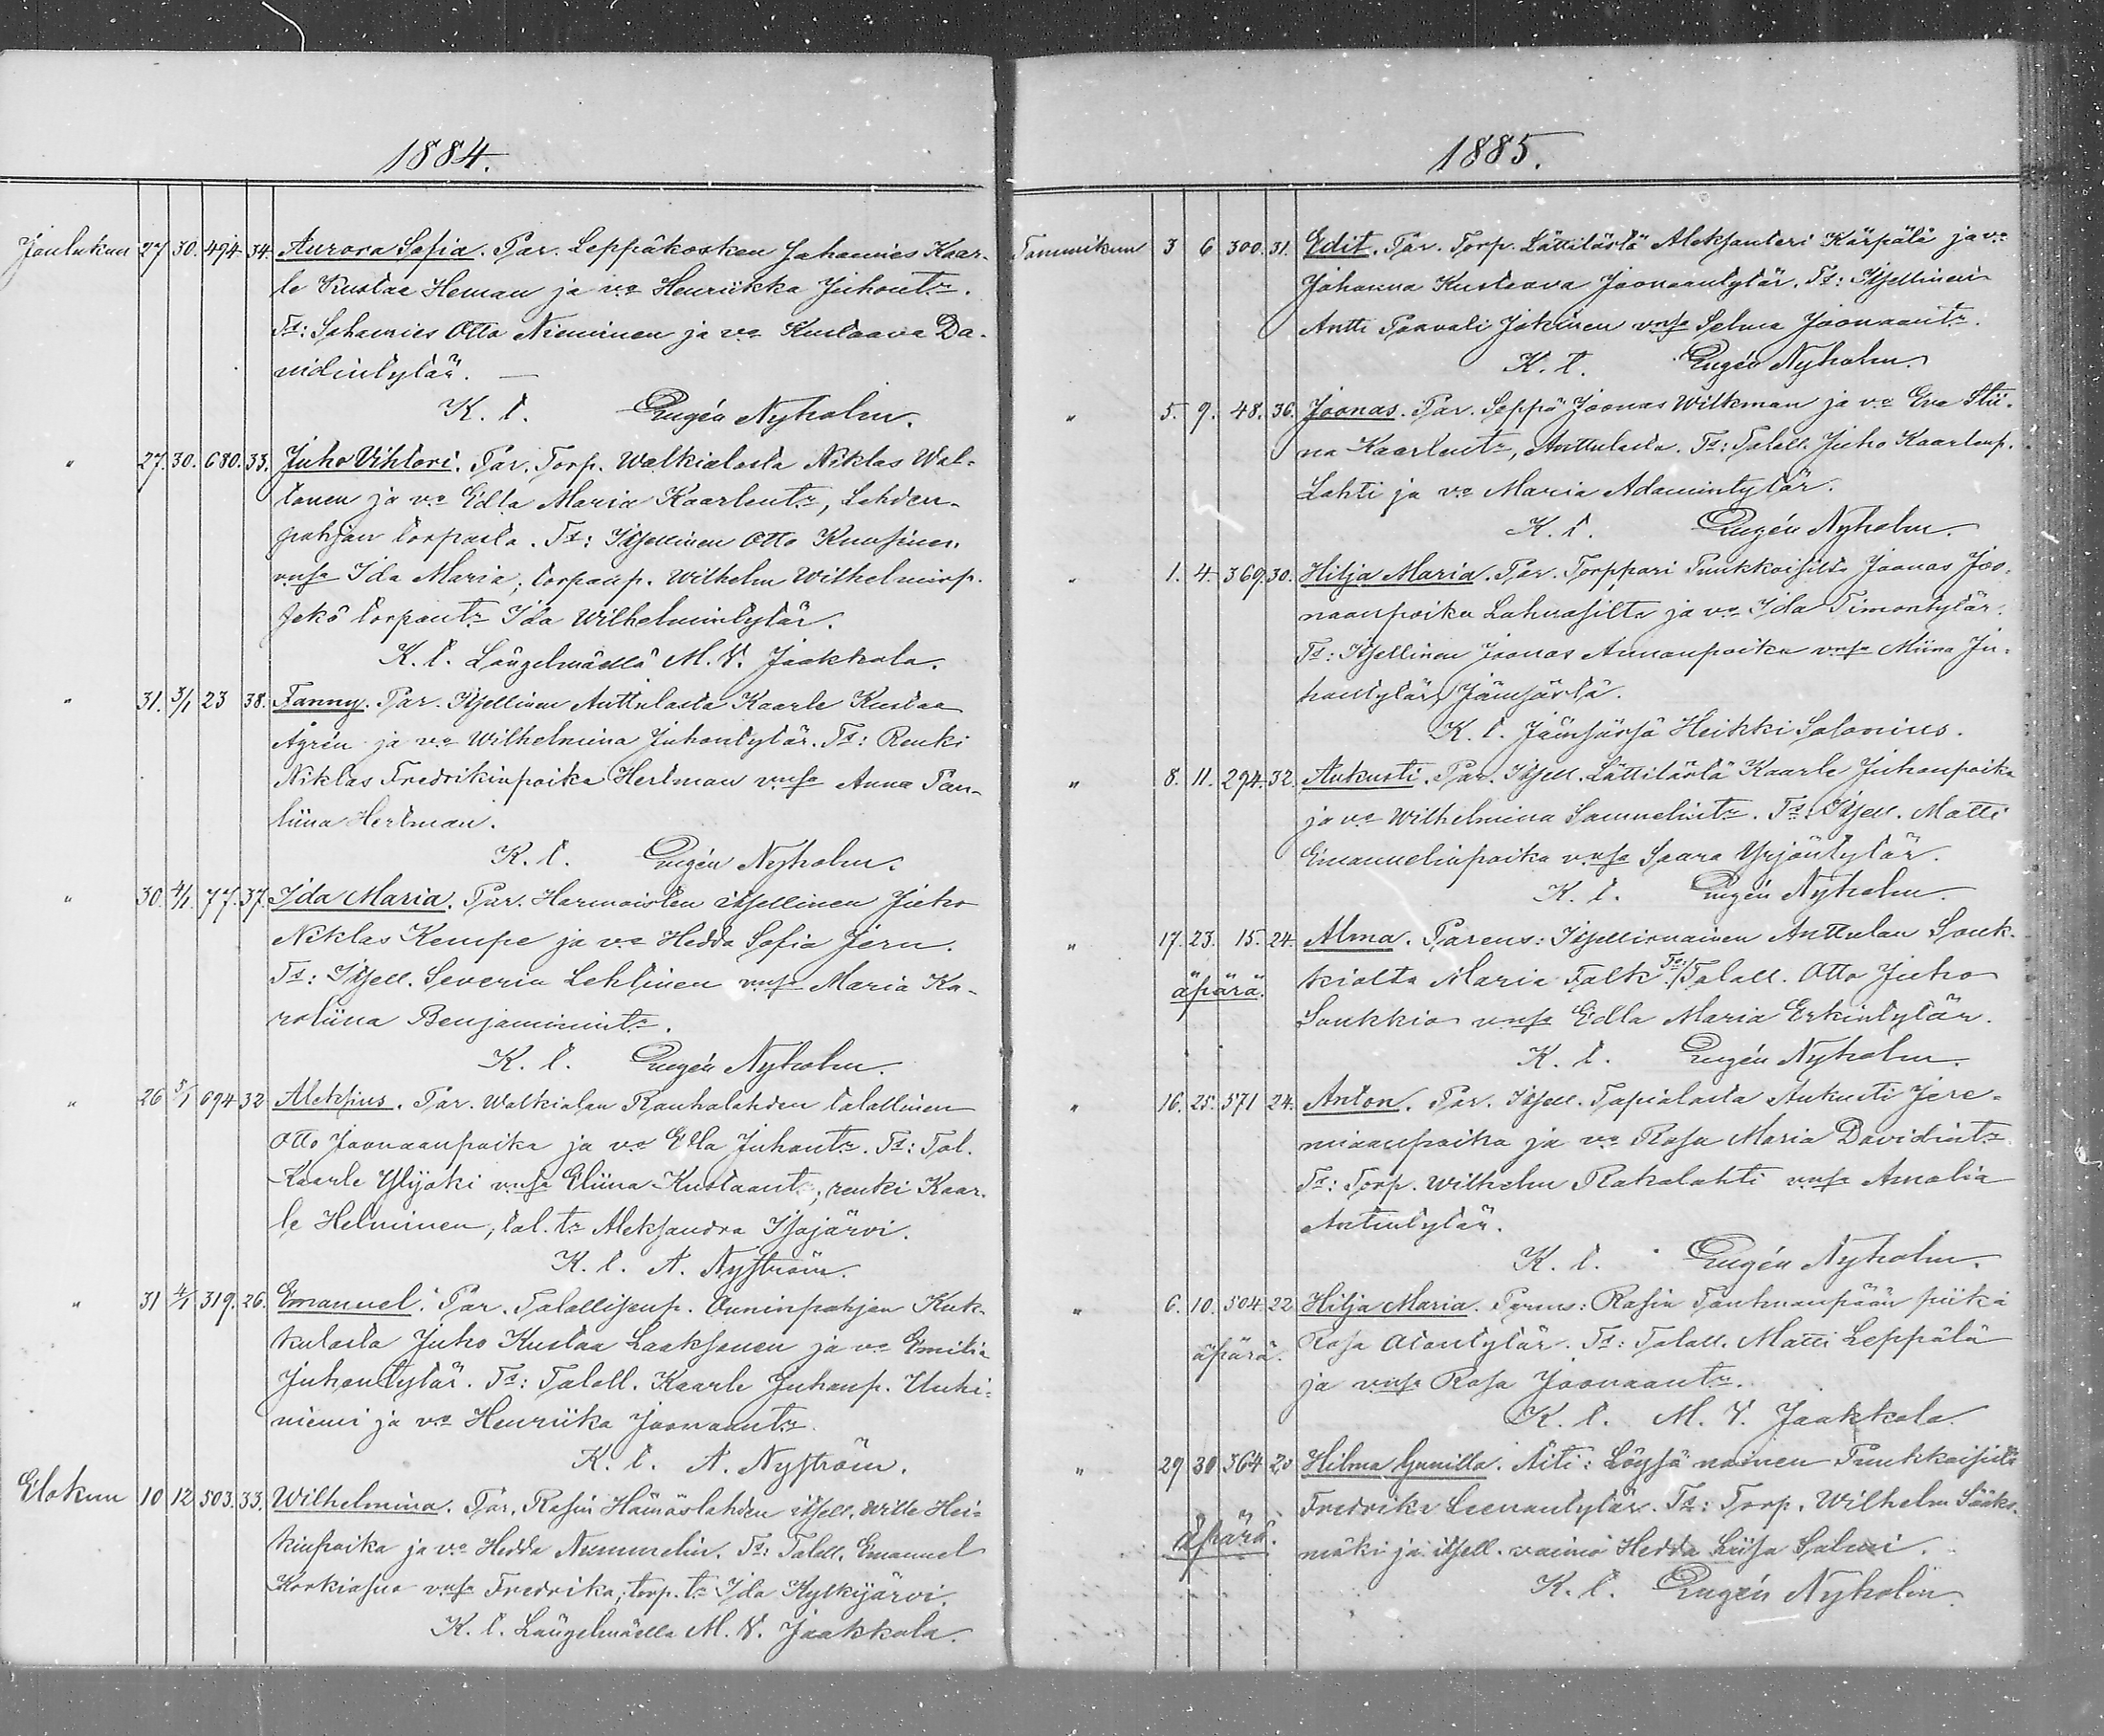 1884.
Joulukun 27 30. 494 34. Aurora Sofia. Par. Leppäkosken Johannes Kaar-
le Kustaa Heman ja vo Henriikka Juhontr.
Ts: Johannes Otto Nieminen ja vo Kustaava Da-
vidintytär. —
K. t. Eugén Nyholm.
" 27. 30. 680. 33. Juho Vihtori. Par. Torp. Walkialasta Niklas Wal-
tonen ja vo Edla Maria Kaarlentr, Lehden-
pohjan torpasta. Ts: Itsellinen Otto Kuusinen
vnsa Ida Maria, torparip. Wilhelm Wilhelminp.
sekä torparitr Ida Wilhelmintytär.
K. t. Längelmäellä M. V. Jaakkola.
" 31. 3/1 23 38. Fanny. Par. Itsellinen Anttulasta Kaarle Kustaa
Ågrén ja vo Wilhelmina Juhontytär. Ts: Renki
Niklas Fredrikinpoika Hertman vnsa Anna Pau-
liina Hertman.
K. t. Eugén Nyholm.
" 30. 4/1. 77. 37. Ida Maria. Par. Harmoisten itsellinen Juho
Niklas Kempe ja vo Hedda Sofia Jern.
Ts: Itsell. Severin Lehtinen vnsa Maria Ka-
roliina Benjaminintr.
K. t. Eugén Nyholm.
" 26 5/1 694 32 Aleksius. Par. Walkialan Rauhalahden talollinen
Otto Joonaanpoika ja vo Ella Juhontr. Ts: Tal.
Kaarle Ylijoki vnsa Eliina Kustaantr, renki Kaar-
le Helminen, tal. tr Aleksandra Isojärvi.
K. t. A. Nyström.
" 31 4/1 319. 26. Emanuel. Par. Talollisenp. Onninpohjan Kuk-
kulasta Juho Kustaa Laaksonen ja vo Emilia
Juhontytär. Ts: Taloll. Kaarle Juhonp. Uuhi-
niemi ja vo Henriika Joonaantr.
K. t. A. Nyström.
Elokun 10 12 503. 33. Wilhelmina. Par. Rasin Hämäslahden itsell. Wille Hei-
kinpoika ja vo Hedda Nummelin. Ts: Taloll. Emanuel
Korkiasuo vnsa Fredrika; torp. tr Ida Kylkijärvi.
K. t. Längelmäellä M. V. Jaakkola.
1885.
Tammikun 3 6 300. 31. Edit. Par. Torp. Lättilästä Aleksanteri Kärpälä ja vo
Johanna Kustaava Joonaantytär. Ts: Itsellinen
Antti Paavali Jokinen vnsa Selma Joonaantr.
K. t. Eugén Nyholm.
" 5. 9. 48. 36. Joonas. Par. Seppä Joonas Wilkman ja vo Eva Stii-
na Kaarlentr, Anttulasta. Ts: Taloll. Juho Kaarlonp.
Lahti ja vo Maria Adamintytär.
K. t. Eugén Nyholm.
" 1. 4. 369. 30. Hilja Maria. Par. Torppari Puukkoisilta Joonas Joo-
naanpoika Lahnasilta ja vo Ida Timontytär.
Ts: Itsellinen Joonas Annanpoika vnsa Miina Ju-
hontytär, Jämsästä.
K. t. Jämsässä Heikki Salonius.
" 8. 11. 294. 32. Aukusti. Par. Itsell. Lättilästä Kaarle Juhonpoika
ja vo Wilhelmina Samuelintr. Ts: Itsell. Matti
Emanuelinpoika vnsa Saara Yrjöntytär.
K. t. Eugén Nyholm.
" 17. 23. 15. 24. Alma. Parens: Itsellisnainen Anttulan Souk-
äpärä. kialta Maria Falk. Ts: Taloll. Otto Juho
Soukkio vnsa Edla Maria Erkintytär.
K. t. Eugén Nyholm.
" 16. 25. 571 24. Anton. Par. Itsell. Tapialasta Aukusti Jere-
miaanpoika ja vo Rosa Maria Davidintr.
Ts: Torp. Wilhelm Rakalahti vnsa Amalia
Antintytär.
K. t. Eugén Nyholm.
" 6. 10. 504 22 Hilja Maria. Parens: Rasin Pautunpään piika
äpärä. Rosa Atontytär. Ts: Taloll. Matti Leppälä
ja vnsa Rosa Joonaantr.
K. t. M. V. Jaakkola.
" 29 30 364 20 Hilma Gunilla. Äiti: Löysä nainen Puukkoisista
Fredrika Leenantytär. Ts: Torp. Wilhelm Sääks-
äpärä. mäki ja itsell. vaimo Hedda Liisa Salmi.
K. t. Eugén Nyholm.